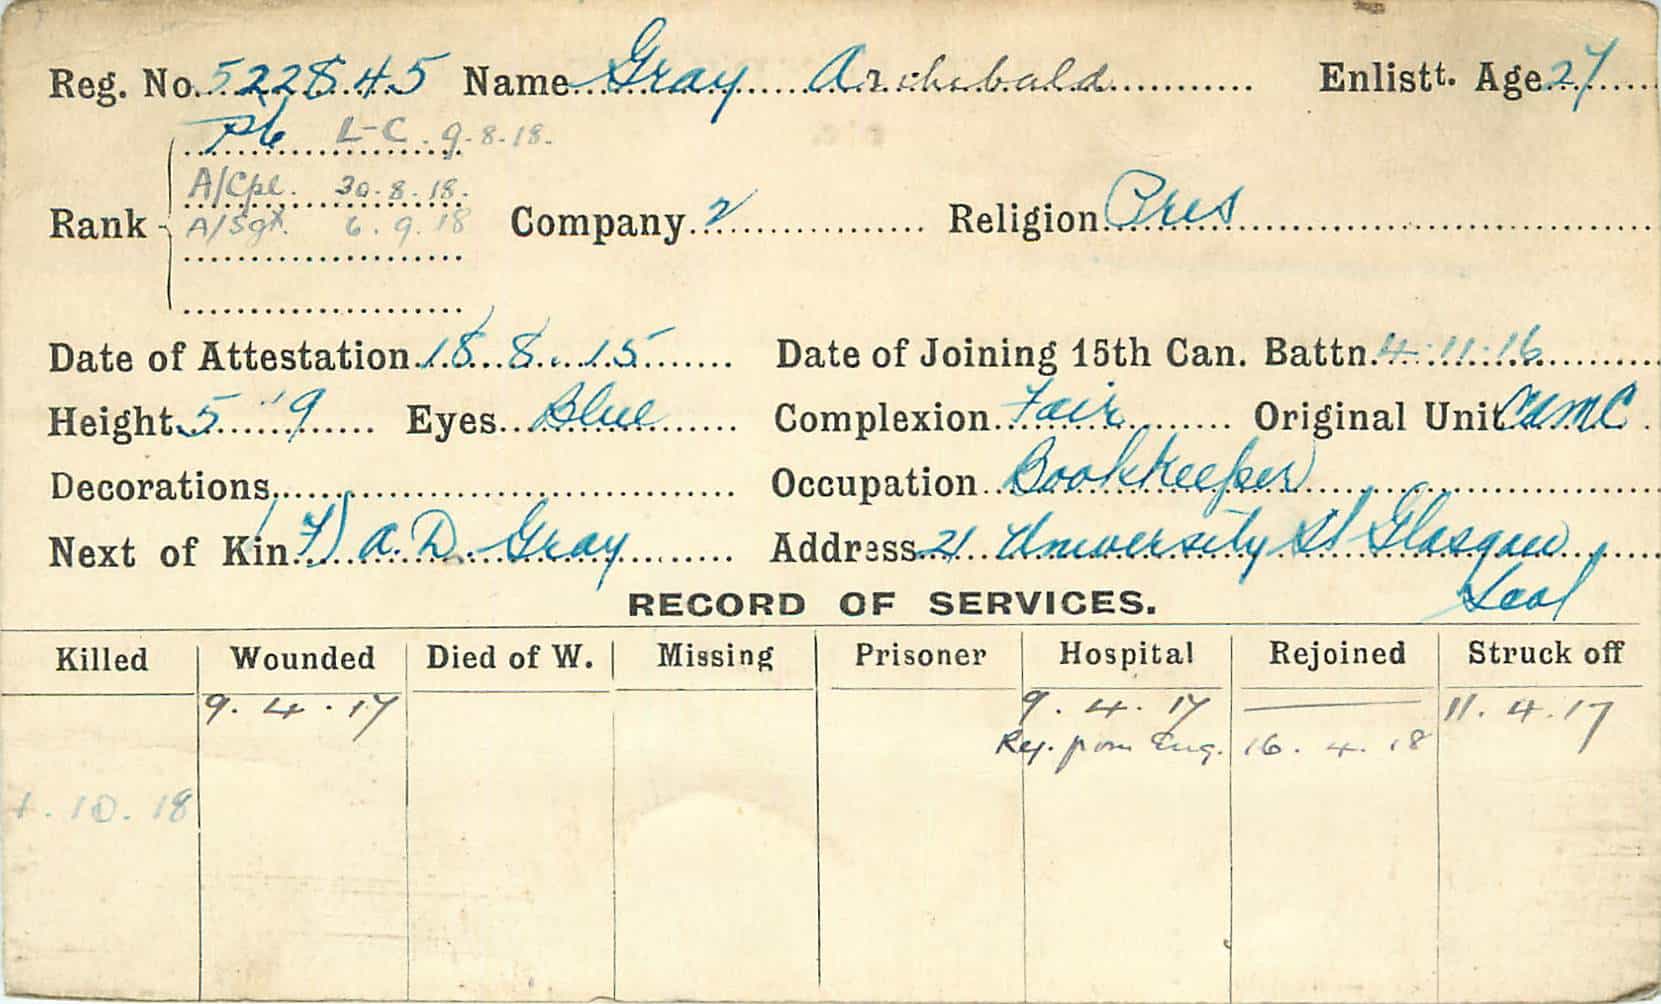 Reg. No. 522845 Name Gray Archibald Enlistt. Age 27
Pte L-C. 9.8.18.
A/Cpl. 30.8.18.
Rank A/Sgt. 6.9.18 Company 2 Religion Pres
Date of Attestation 18.8.15 Date of Joining 15th Can. Battn. 4.11.16
Height 5"9 Eyes Blue Complexion Fair Original Unit CAMC
Decorations Occupation Bookkeeper
Next of Kin (F) A. D. Gray Address 21 University St Glasgow
Scot
RECORD OF SERVICES.
Killed Wounded Died of W. Missing Prisoner Hospital Rejoined Struck off
9.4.17 9.4.17 — 11.4.17
Rej. from Eng. 16.4.18
1.10.18